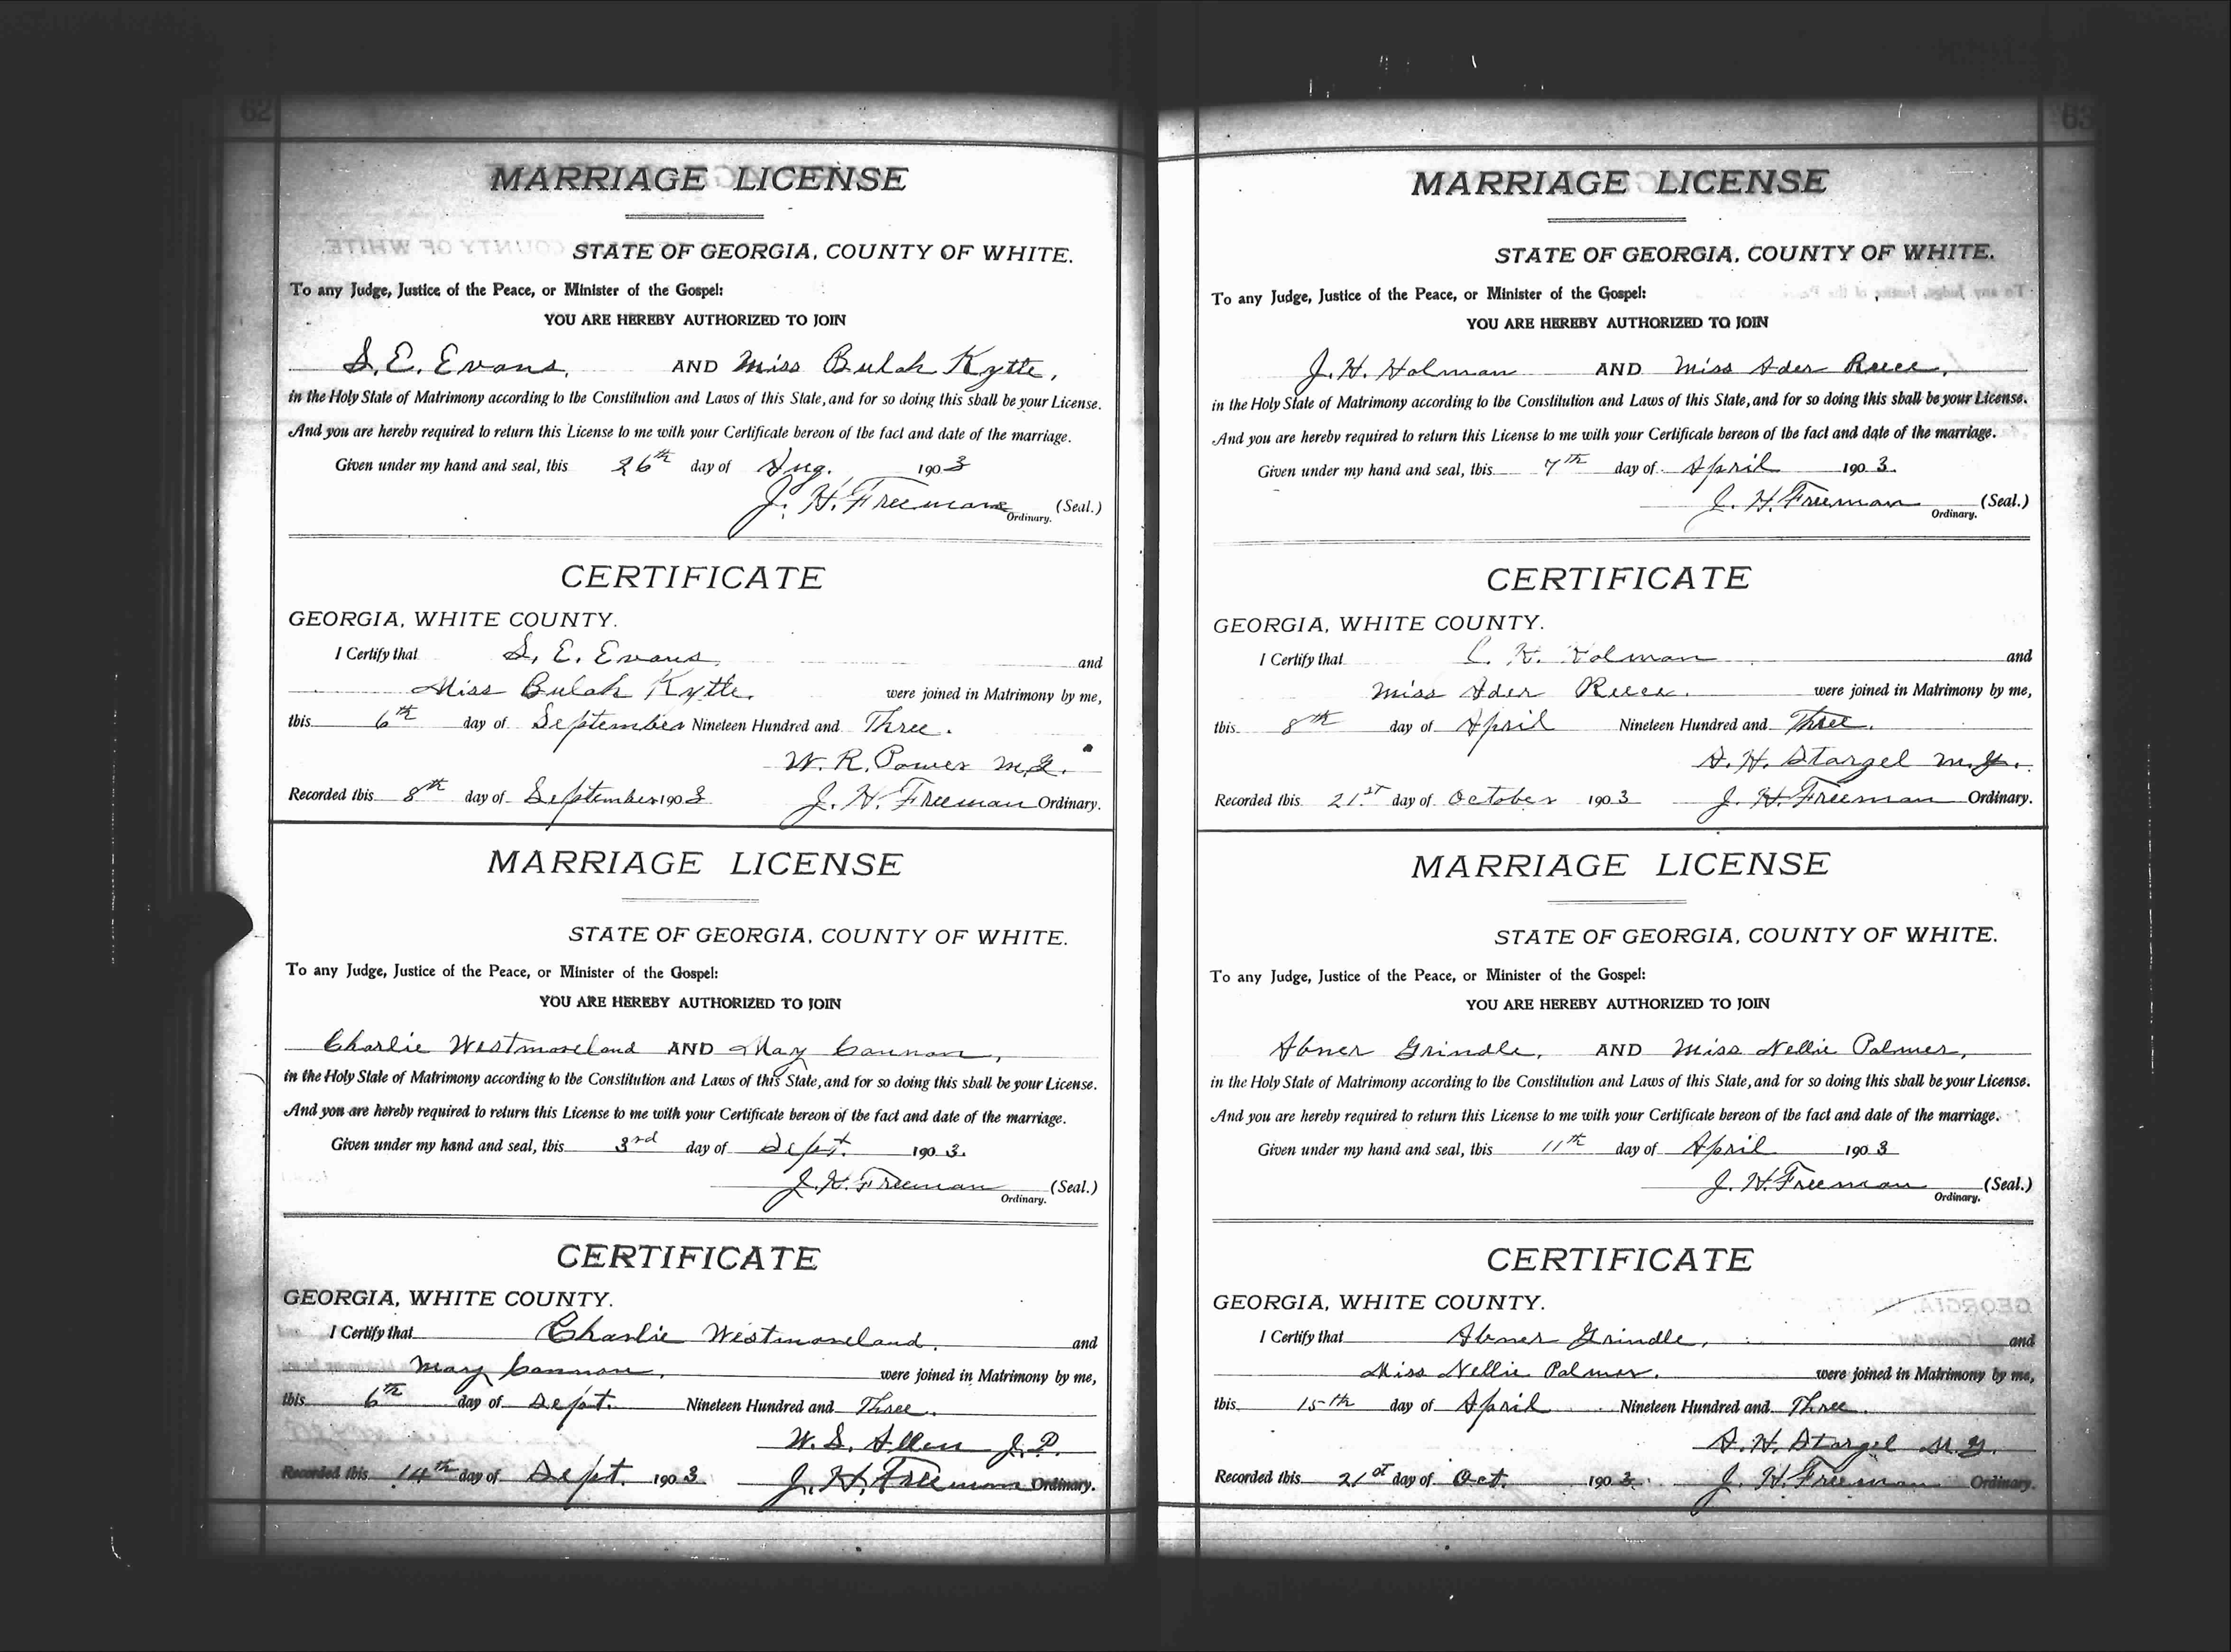 62
MARRIAGE LICENSE
STATE OF GEORGIA, COUNTY OF WHITE.
To any Judge, Justice of the Peace, or Minister of the Gospel:
YOU ARE HEREBY AUTHORIZED TO JOIN
S. E. Evans, AND Miss Bulah Kytle,
in the Holy State of Matrimony according to the Constitution and Laws of this State, and for so doing this shall be your License.
And you are hereby required to return this License to me with your Certificate hereon of the fact and date of the marriage.
Given under my hand and seal, this 26th day of Aug. 1903
J. H. Freeman (Seal.)
Ordinary.
CERTIFICATE
GEORGIA, WHITE COUNTY.
I Certify that S. E. Evans and
Miss Bulah Kytle. were joined in Matrimony by me,
this 6th day of September Nineteen Hundred and Three.
W. R. Power M.G.
Recorded this 8th day of September 1903 J. H. Freeman Ordinary.
MARRIAGE LICENSE
STATE OF GEORGIA, COUNTY OF WHITE.
To any Judge, Justice of the Peace, or Minister of the Gospel:
YOU ARE HEREBY AUTHORIZED TO JOIN
Charlie Westmoreland AND May Cannon,
in the Holy State of Matrimony according to the Constitution and Laws of this State, and for so doing this shall be your License.
And you are hereby required to return this License to me with your Certificate hereon of the fact and date of the marriage.
Given under my hand and seal, this 3rd day of Sept. 1903.
J. H. Freeman (Seal.)
Ordinary.
CERTIFICATE
GEORGIA, WHITE COUNTY.
I Certify that Charlie Westmoreland. and
May Cannon, were joined in Matrimony by me,
this 6th day of Sept. Nineteen Hundred and Three.
W. S. Allen J.P.
Recorded this 14th day of Sept. 1903 J. H. Freeman Ordinary.
63
MARRIAGE LICENSE
STATE OF GEORGIA, COUNTY OF WHITE.
To any Judge, Justice of the Peace, or Minister of the Gospel:
YOU ARE HEREBY AUTHORIZED TO JOIN
J. H. Holman AND Miss Ader Reece,
in the Holy State of Matrimony according to the Constitution and Laws of this State, and for so doing this shall be your License.
And you are hereby required to return this License to me with your Certificate hereon of the fact and date of the marriage.
Given under my hand and seal, this 7th day of April 1903.
J. H. Freeman (Seal.)
Ordinary.
CERTIFICATE
GEORGIA, WHITE COUNTY.
I Certify that H. Holman and
Miss Ader Reece. were joined in Matrimony by me,
this 8th day of April Nineteen Hundred and Three.
A. H. Stargel M.G.
Recorded this 21st day of October 1903 J. H. Freeman Ordinary.
MARRIAGE LICENSE
STATE OF GEORGIA, COUNTY OF WHITE.
To any Judge, Justice of the Peace, or Minister of the Gospel:
YOU ARE HEREBY AUTHORIZED TO JOIN
Abner Grindle, AND Miss Nellie Palmer,
in the Holy State of Matrimony according to the Constitution and Laws of this State, and for so doing this shall be your License.
And you are hereby required to return this License to me with your Certificate hereon of the fact and date of the marriage.
Given under my hand and seal, this 11th day of April 1903
J. H. Freeman (Seal.)
Ordinary.
CERTIFICATE
GEORGIA, WHITE COUNTY.
I Certify that Abner Grindle, and
Miss Nellie Palmer. were joined in Matrimony by me,
this 15th day of April Nineteen Hundred and Three.
A. H. Stargel M.G.
Recorded this 21st day of Oct. 1903. J. H. Freeman Ordinary.